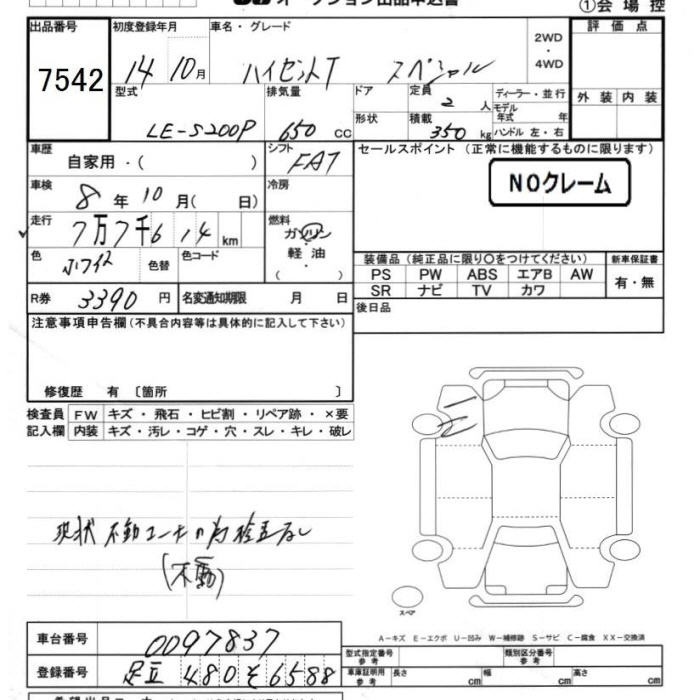 オークション出品申込書 ①会場控
出品番号 初度登録年月 車名・グレード 評価点
7542 14 10月 ハイゼットT スペシャル 2WD・4WD
型式 排気量 ドア 定員 2 人 ディーラー・並行 外装 内装
LE-S200P 650 cc 形状 積載 350 kg モデル年式 年 ハンドル 左・右
車歴 自家用・( ) シフト FA7 セールスポイント(正常に機能するものに限ります)
車検 8年10月( 日) 冷房 NOクレーム
走行 7万7千6 14 km 燃料 ガソリン・軽油・( )
色 ホワイト 色替 色コード 装備品(純正品に限り〇をつけてください) 新車保証書
PS PW ABS エアB AW 有・無
SR ナビ TV カワ
R券 3390 円 名変通知期限 月 日 後日品
注意事項申告欄(不具合内容等は具体的に記入して下さい)
修復歴 有 〔箇所 〕
検査員 FW キズ・飛石・ヒビ割・リペア跡・×要
記入欄 内装 キズ・汚レ・コゲ・穴・スレ・キレ・破レ
現状 不動コーナーの為検査なし
(不動)
スペア
A-キズ E-エクボ U-凹み W-補修跡 S-サビ C-腐食 XX-交換済
車台番号 0097837 型式指定番号 参考 類別区分番号 参考
登録番号 足立 480 そ 6588 車庫証明用 参考 長さ cm 幅 cm 高さ cm